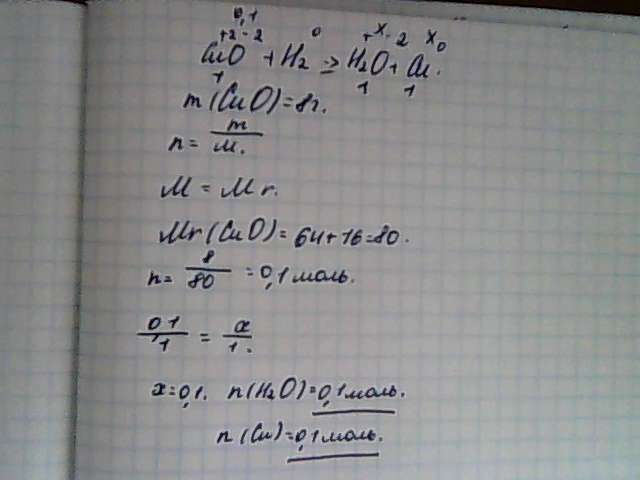 0,1
+2 -2 0 +x -2 x 0
CuO + H2 → H2O + Cu.
1 1 1
m (CuO) = 8г.
n = m / M.
M = Mr.
Mr (CuO) = 64 + 16 = 80.
n = 8 / 80 = 0,1 моль.
0,1 / 1 = x / 1.
x = 0,1. n (H2O) = 0,1 моль.
n (Cu) = 0,1 моль.